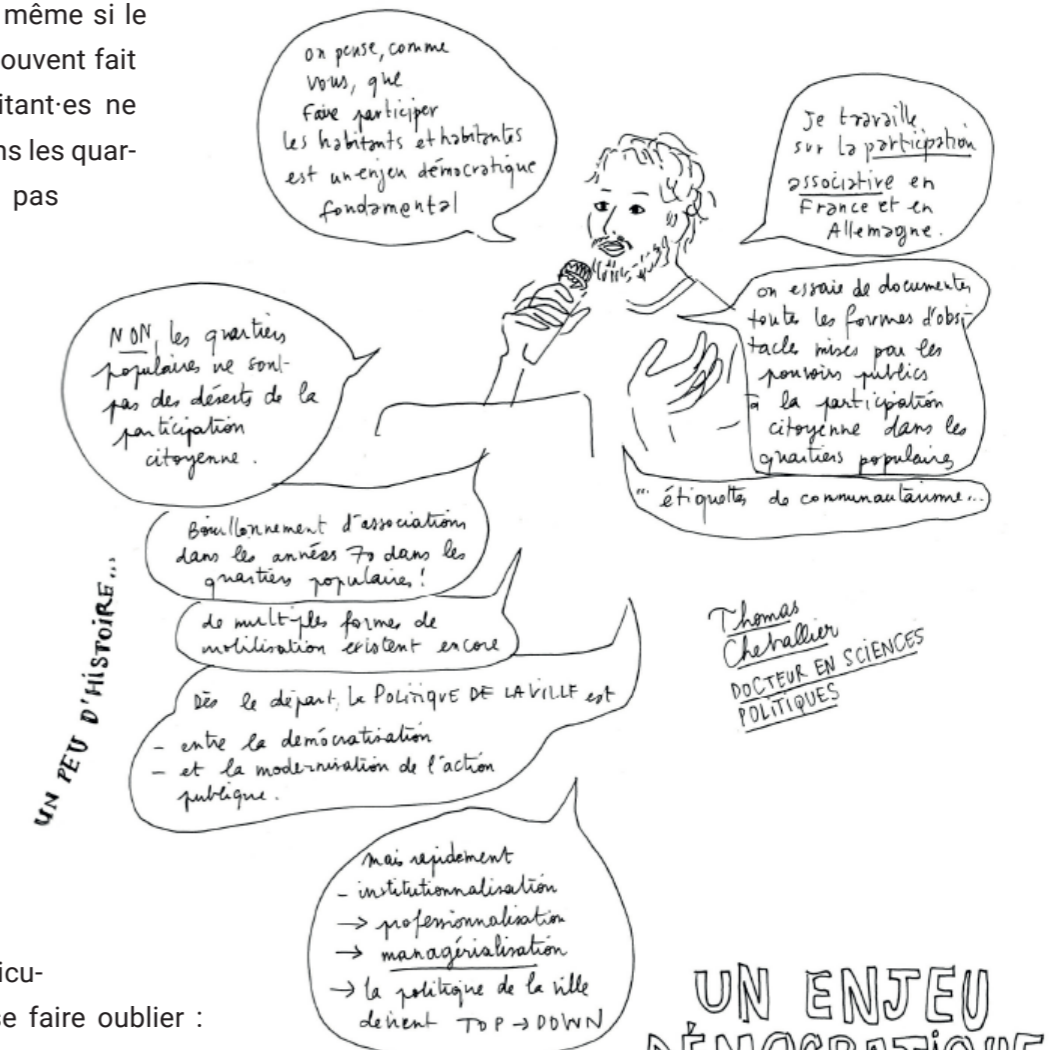 même si le
ouvent fait
itant·es ne
ns les quar-
pas
on pense, comme
vous, que
faire participer
les habitants et habitantes
est un enjeu démocratique
fondamental
je travaille
sur la participation
associative en
France et en
Allemagne.
on essaie de documenter
toutes les formes d'obs-
tacles mises par les
pouvoirs publics
à la participation
citoyenne dans les
quartiers populaires
... étiquettes de communautarisme...
NON, les quartiers
populaires ne sont
pas des déserts de la
participation
citoyenne.
Bouillonnement d'associations
dans les années 70 dans les
quartiers populaires !
de multiples formes de
mobilisation existent encore
UN PEU D'HISTOIRE...
Dès le départ, la POLITIQUE DE LA VILLE est
- entre la démocratisation
- et la modernisation de l'action
publique.
Thomas
Chevallier
DOCTEUR EN SCIENCES
POLITIQUES
mais rapidement
- institutionnalisation
→ professionnalisation
→ managérialisation
→ la politique de la ville
devient TOP → DOWN
icu-
se faire oublier :
UN ENJEU
DÉMOCRATIQUE